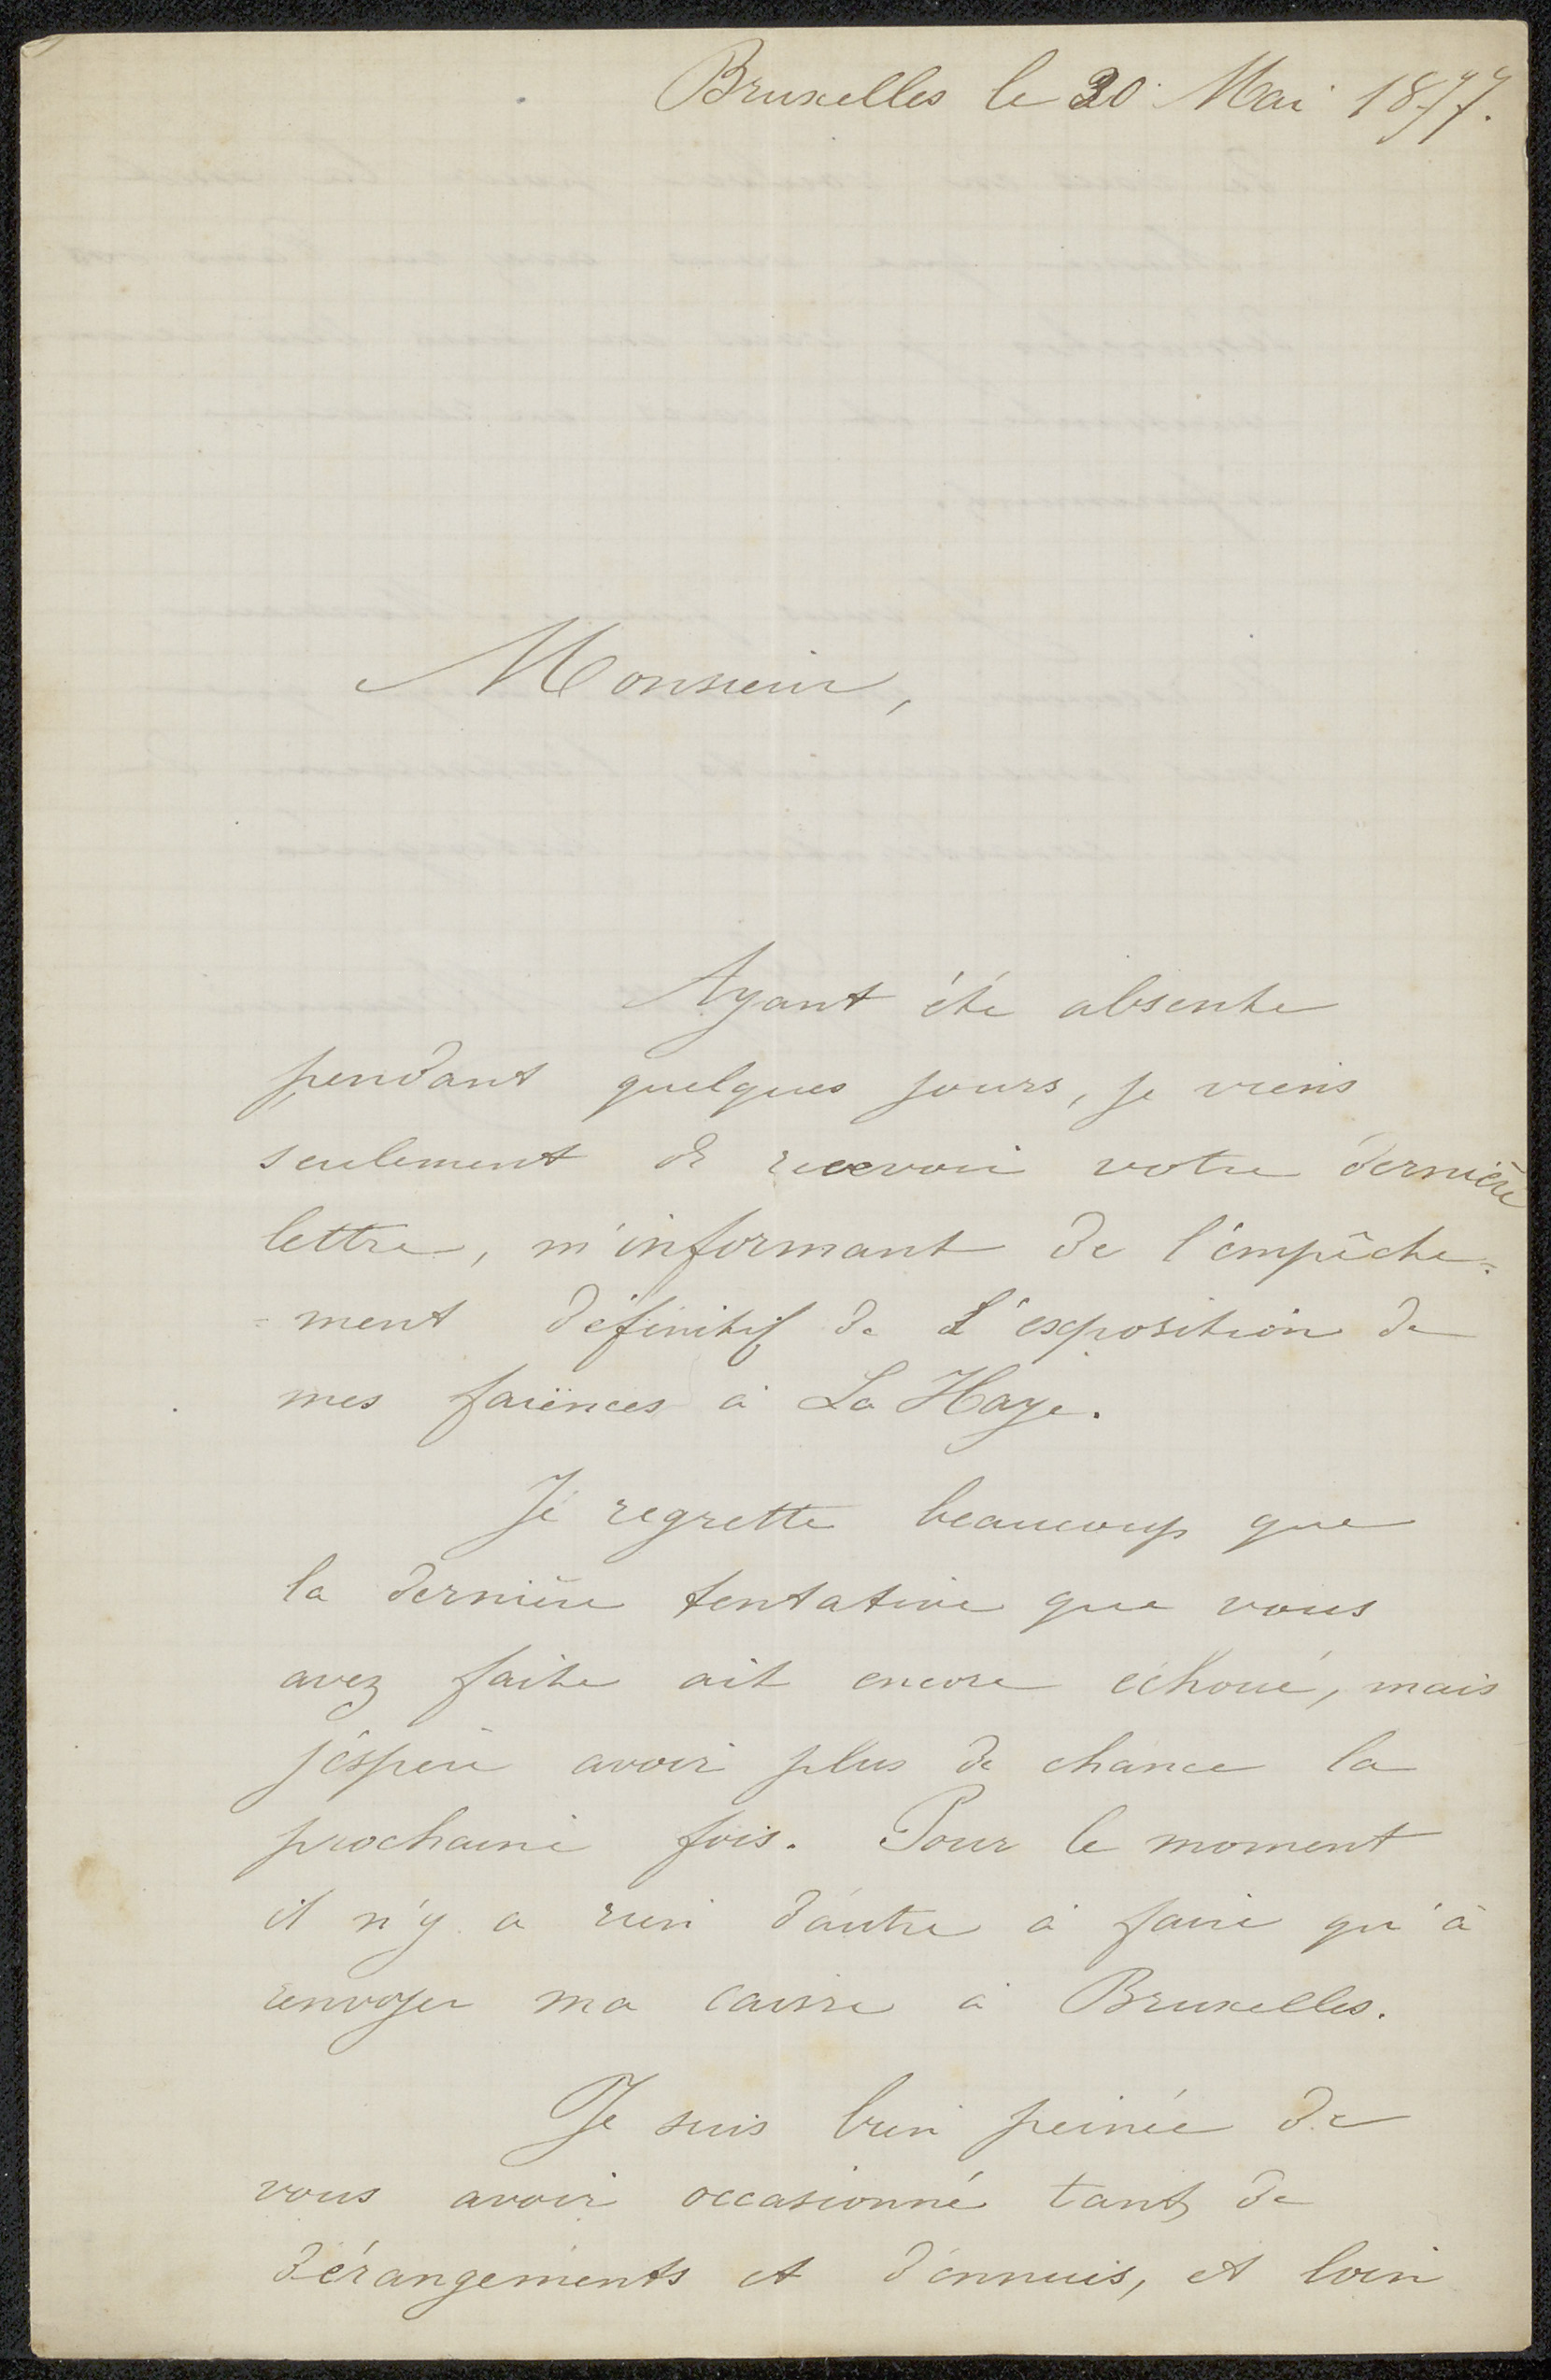 Bruxelles le 30 Mai 1877.
Monsieur,
Ayant été absente
pendant quelques jours, je viens
seulement de recevoir votre dernière
lettre, m'informant de l'empêche=
=ment définitif de L'exposition de
mes faïences à La Haye.
Je regrette beaucoup que
la dernière tentative que vous
avez faite ait encore échoué, mais
j'espère avoir plus de chance la
prochaine fois. Pour le moment
il n'y a rien d'autre à faire qu'à
renvoyer ma caisse à Bruxelles.
Je suis bien peinée de
vous avoir occasionné tant de
dérangements et d'ennuis, et loin